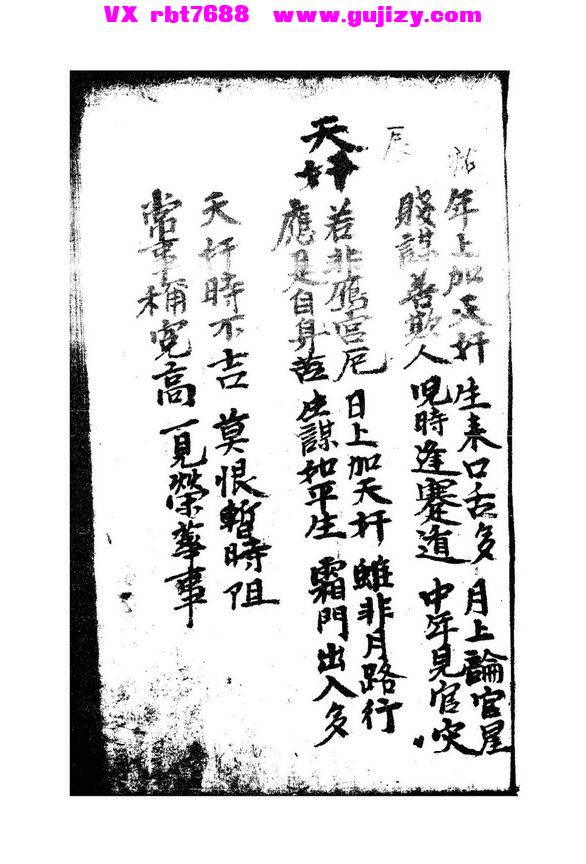 VX rbt7688 www.gujizy.com
年上加天奸 生來口舌多 月上論官星
賤謀善欺人 児時逢蹇道 中年見官
辰
天奸
若非應宮厄 日上加天奸 雖非月路行
應是自身 生謀如平生 霜門出入多
天奸時不吉 莫恨暫時阻
常事稱寃高 一見榮華事